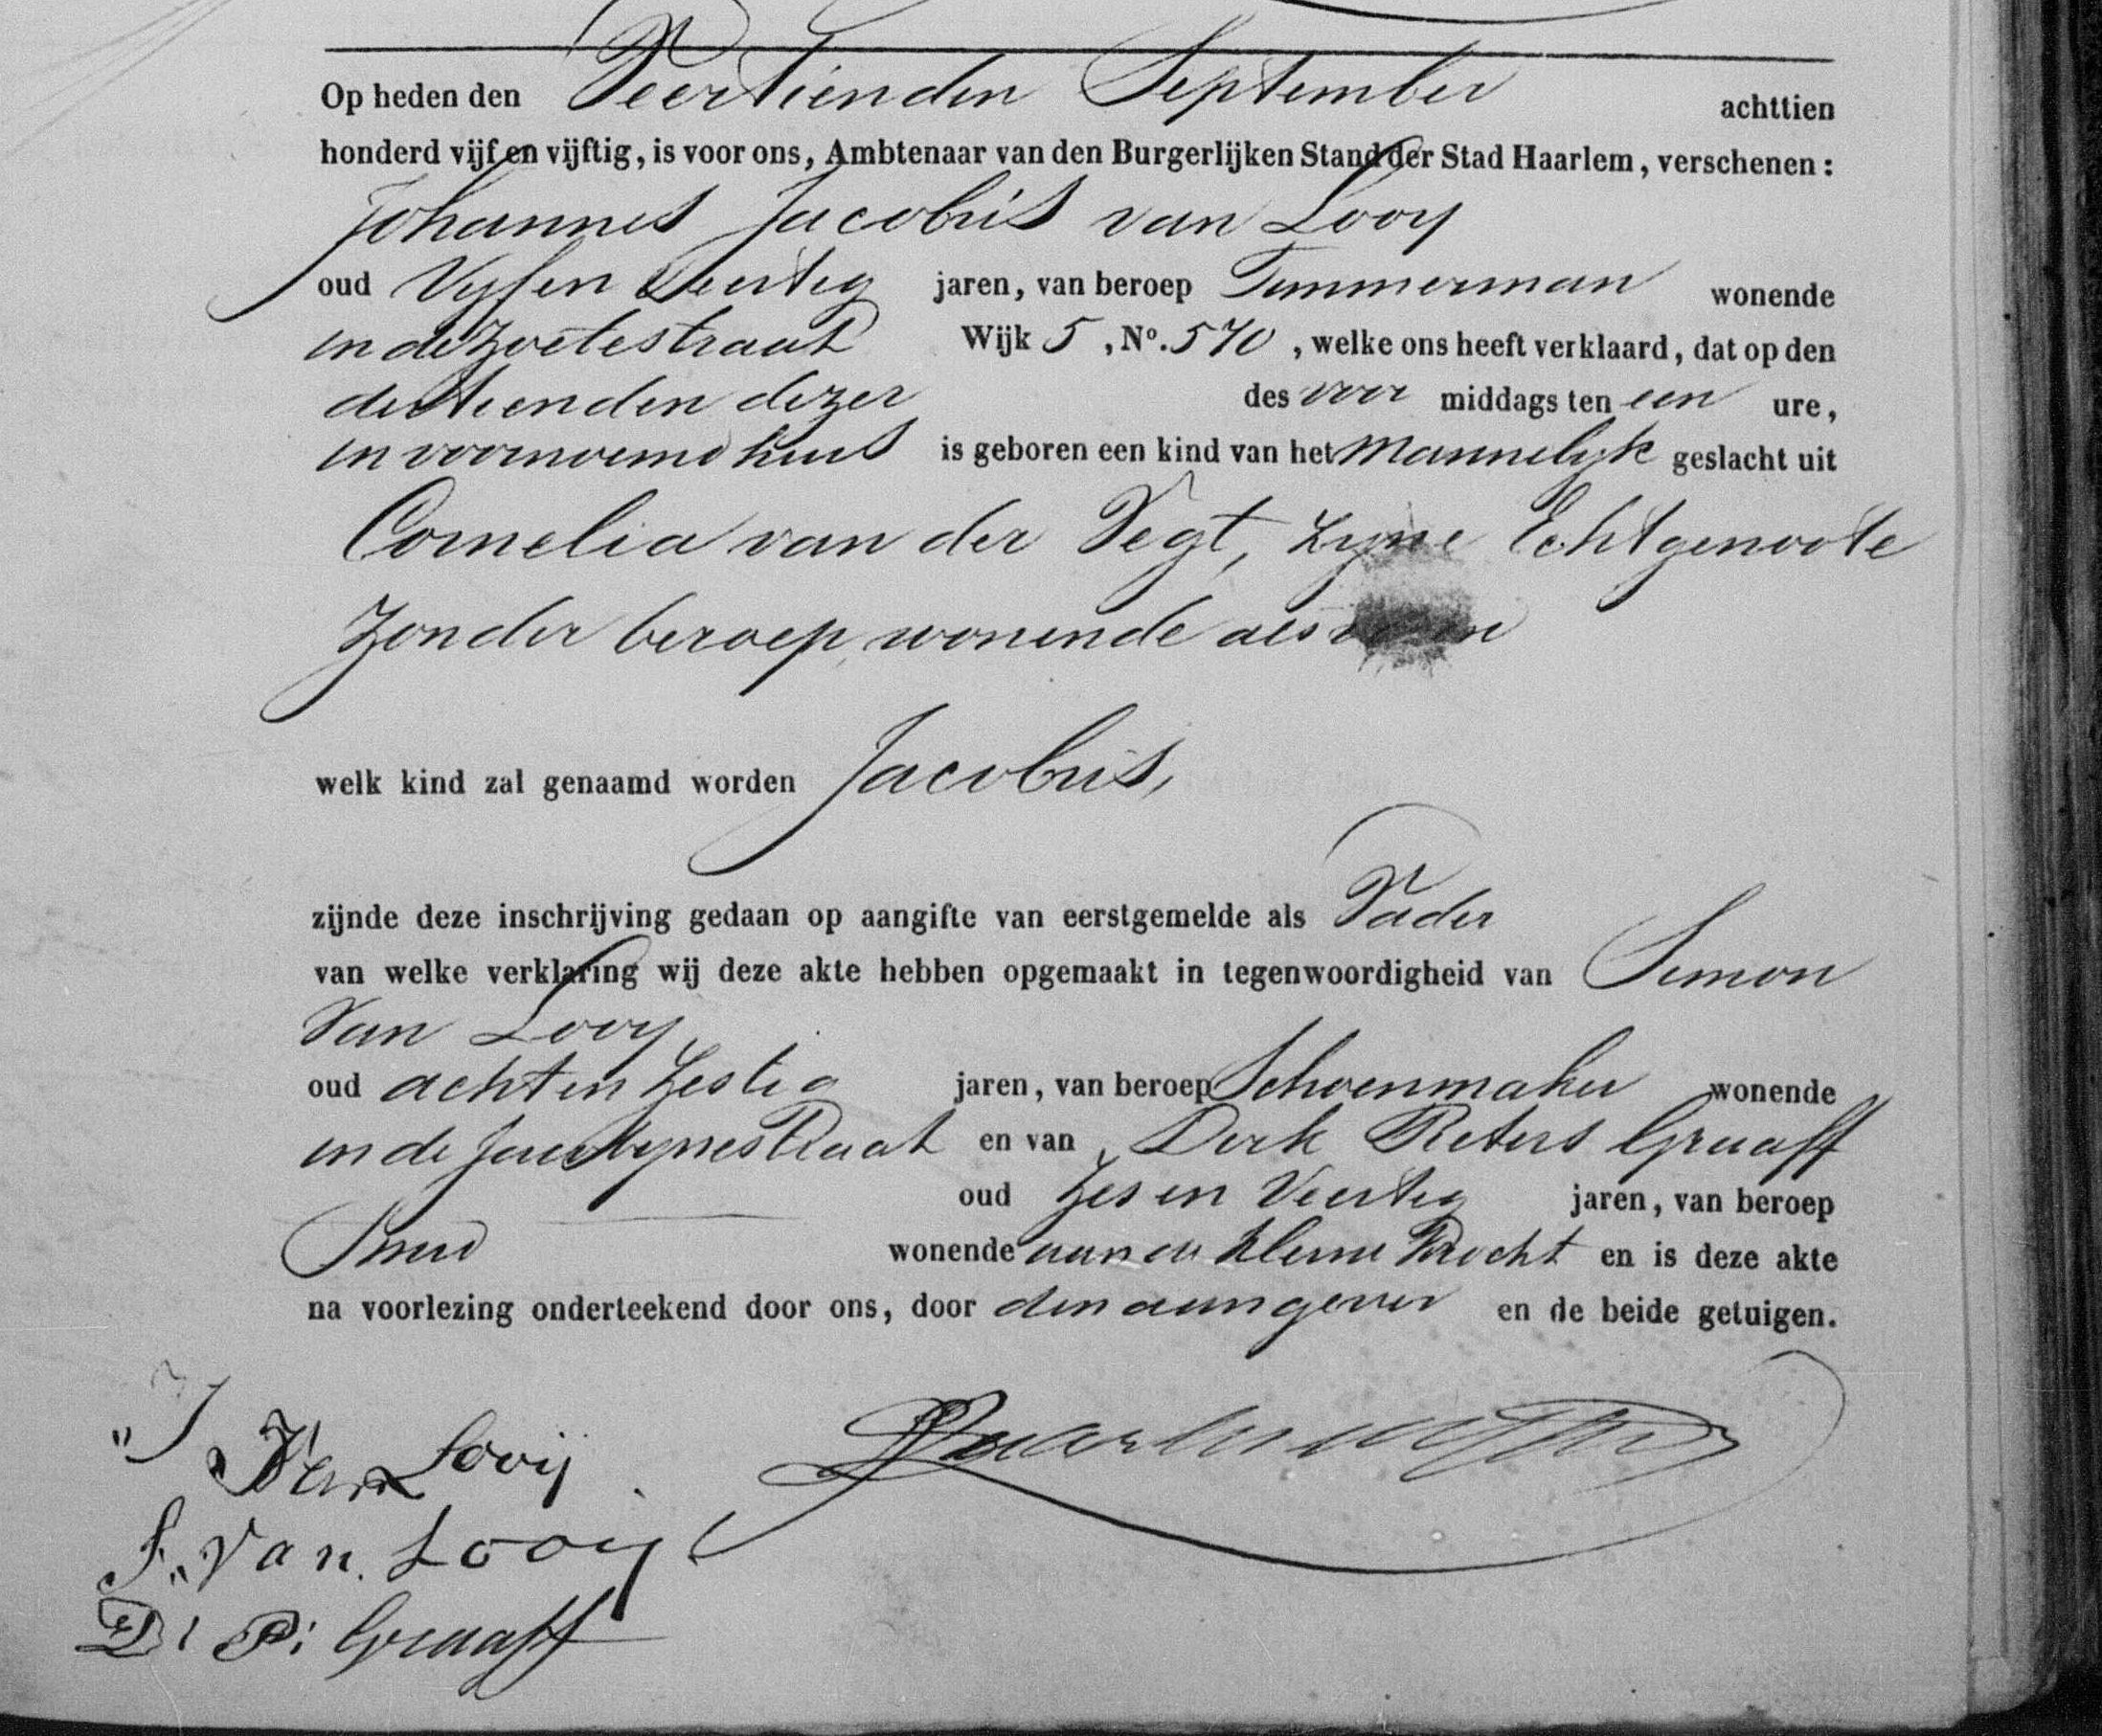 Op heden den Veertienden September achttien
honderd vijf en vijftig, is voor ons, Ambtenaar van den Burgerlijken Stand der Stad Haarlem, verschenen:
Johannes Jacobus van Looy
oud Vyf en Veertig jaren, van beroep Timmerman wonende
in de Zoetestraat Wijk 5, No. 570, welke ons heeft verklaard, dat op den
dertienden dezer des voor middags ten een ure,
in voornoemd huis is geboren een kind van het Mannelyk geslacht uit
Cornelia van der Vegt, Zyne Echtgenoote
Zonder beroep, wonende als
welk kind zal genaamd worden Jacobus,
zijnde deze inschrijving gedaan op aangifte van eerstgemelde als Vader
van welke verklaring wij deze akte hebben opgemaakt in tegenwoordigheid van Simon
Van Looy
oud acht en Zestig jaren, van beroep Schoenmaker wonende
in de en van Dirk Peters Graaff
oud Zes en Veertig jaren, van beroep
Smid wonende aan de Kleine Drocht en is deze akte
na voorlezing onderteekend door ons, door den aangever en de beide getuigen.
J Van Looij
S. Van Looy
D: P: Graaff